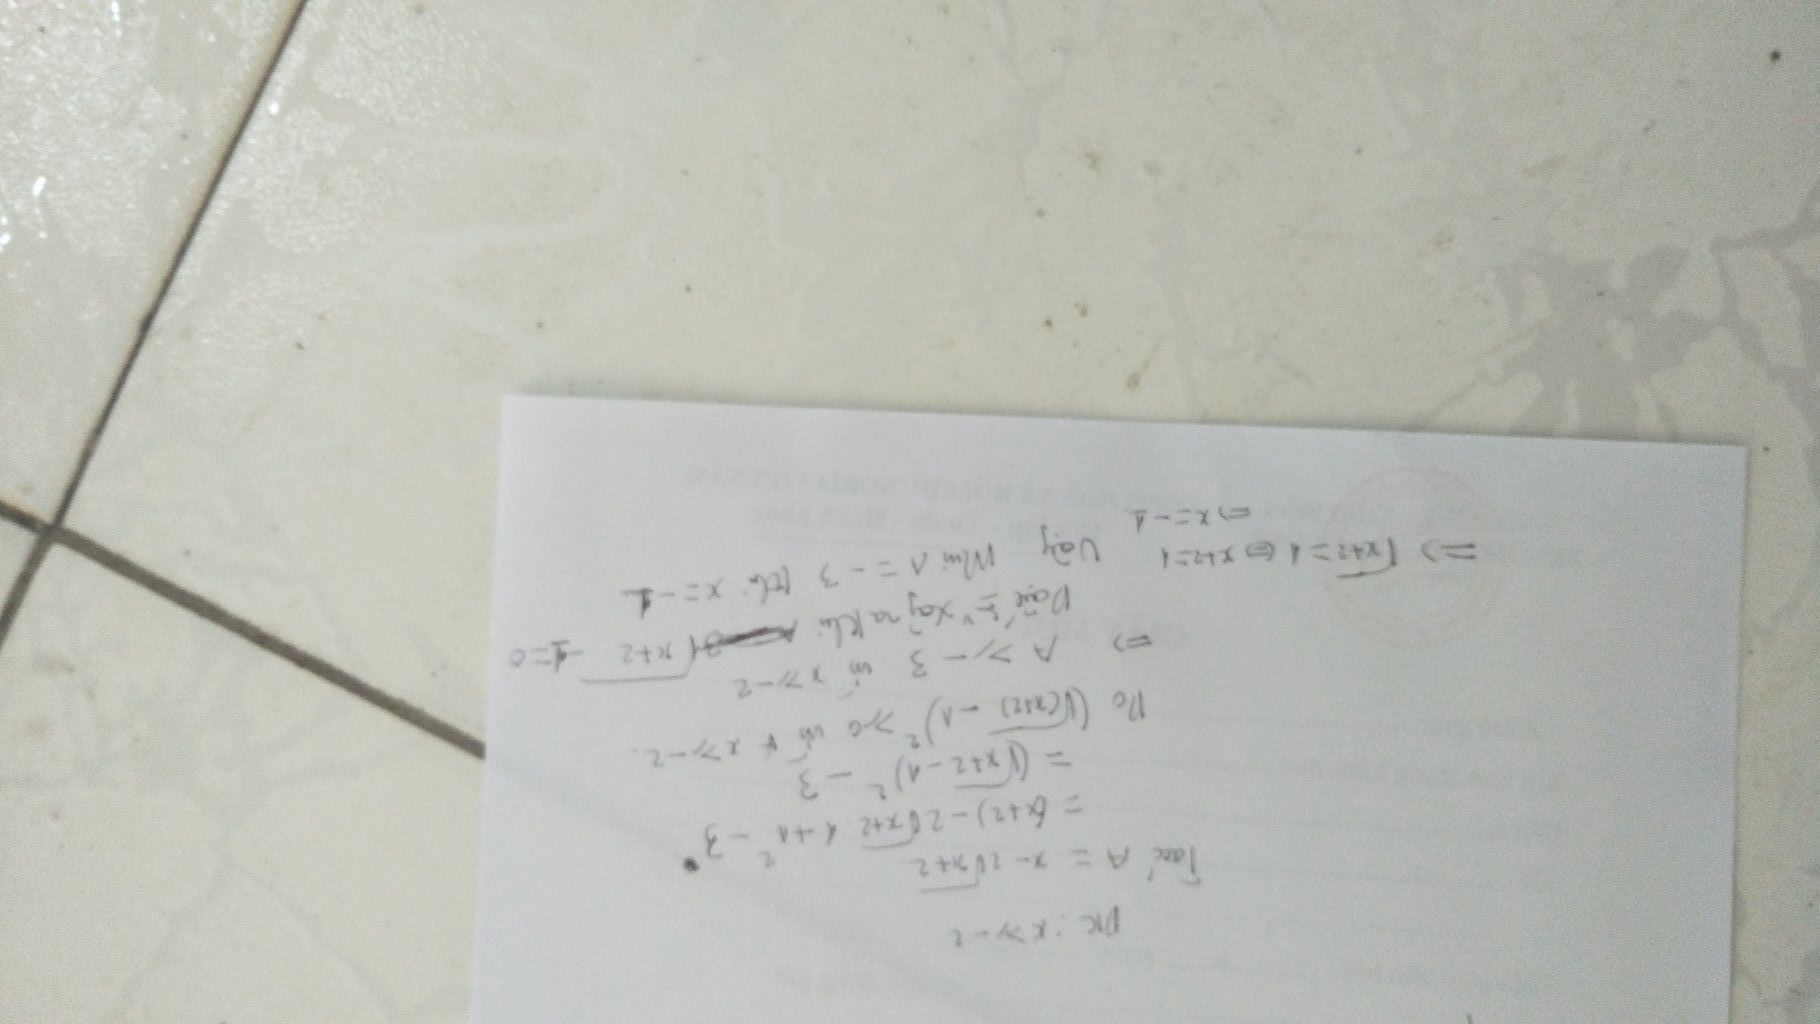 ĐK: x ≥ -2
Ta có A = x - 2√x+2
= (x+2) - 2√x+2 . 1 + 1² - 3
= (√x+2 - 1)² - 3
Do (√(x+2) - 1)² ≥ 0 với ∀ x ≥ -2.
=> A ≥ -3 với x ≥ -2
Dấu "=" xảy ra khi √x+2 - 1 = 0
=> √x+2 = 1 ⇔ x+2 = 1
⇔ x = -1
Vậy Min A = -3 khi x = -1